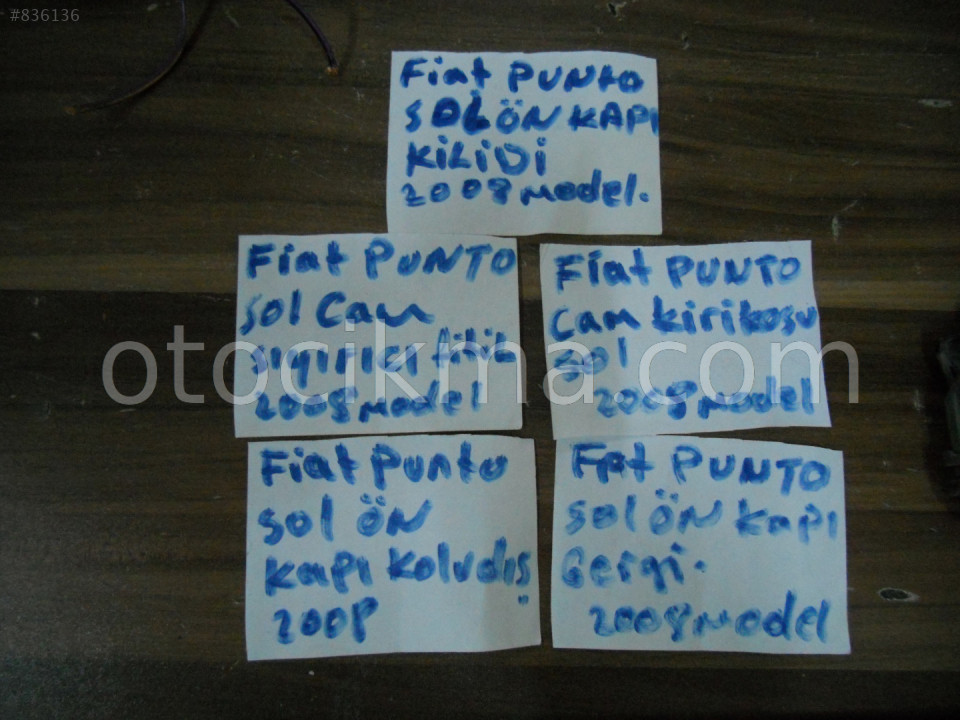 #836136
Fiat PUNTO
SOL ÖN KAPI
KİLİDİ
2008 model.
Fiat PUNTO
sol Cam
sıyırıcı fitil
2008 model
Fiat PUNTO
Cam kirikosu
sol
2008 model
Fiat Punto
sol ÖN
kapı Koludış
2008
Fiat PUNTO
sol ÖN kapı
Gergi.
2008 model
otocikma.com